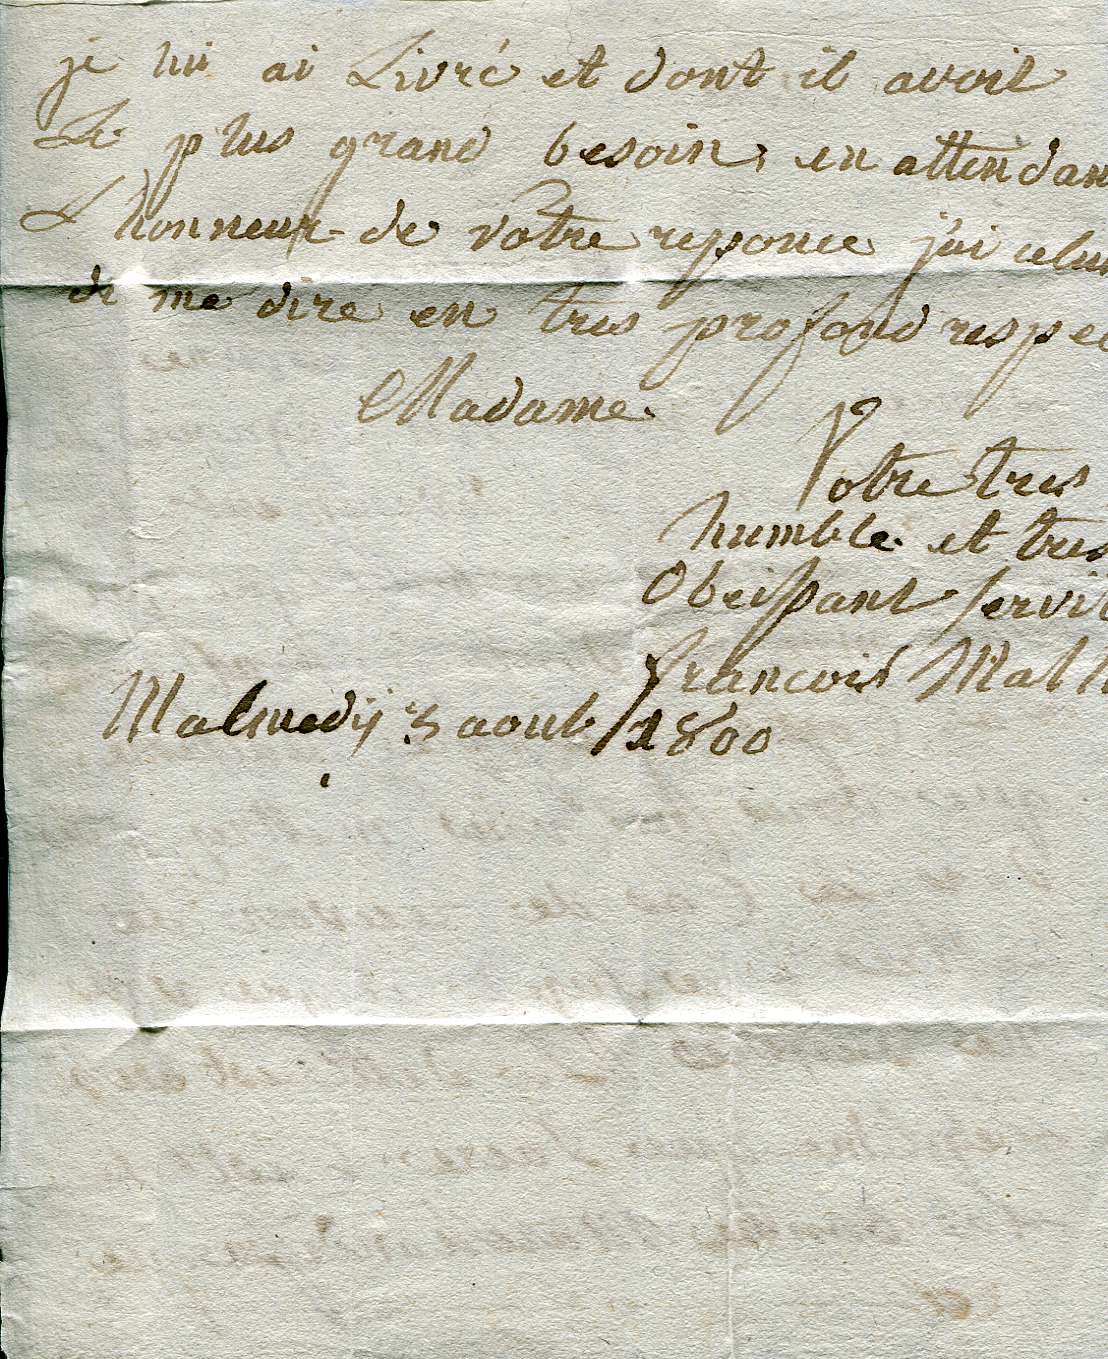 je lui ai Livré et dont il avoit
Le plus grand besoin, en attendan
L'honneur de Votre reponce j'ai celui
de me dire en tres profond respec
Madame.
Votre tres
humble et tres
Obeissant servit
francois Mal
Malmedÿ 3 aout 1800